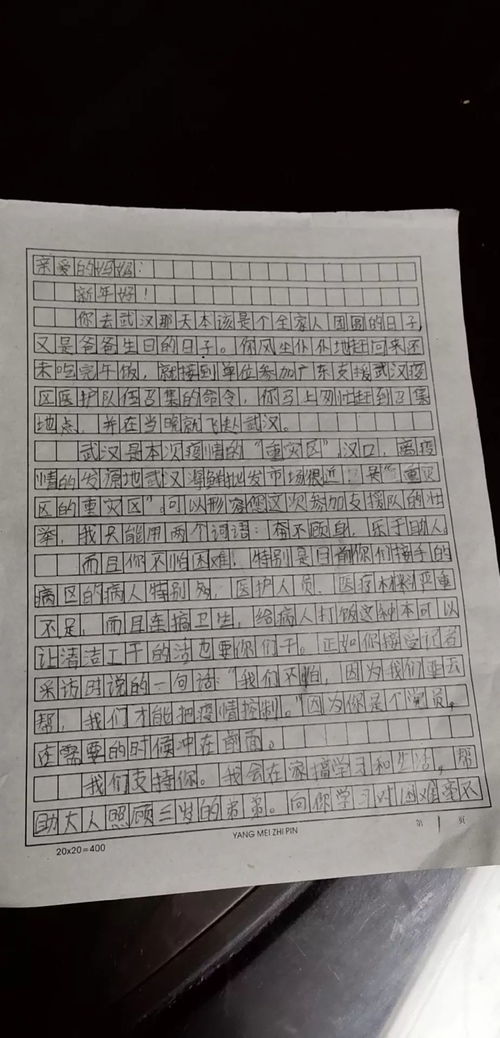 亲爱的妈妈：
新年好！
你去武汉那天本该是个全家人团圆的日子，
又是爸爸生日的日子。你风尘仆仆地赶回来还
未吃完午饭，就接到单位参加广东支援武汉疫
区医护队伍召集的命令，你马上匆忙赶到召集
地点，并在当晚就飞赴武汉。
武汉是本次疫情的“重灾区”，汉口，离疫
情的发源地武汉海鲜批发市场很近，是“重灾
区的重灾区”。可以形容您这次参加支援队的壮
举，我只能用两个词语：奔不顾身，乐于助人。
而且你不怕困难，特别是目前你们接手的
病区的病人特别多，医护人员、医疗材料严重
不足，而且连搞卫生，给病人打饭这种本可以
让清洁工干的活也要你们干。正如你接受记者
采访时说的一句话：“我们不怕，因为我们要去
帮，我们才能把疫情控制。”因为你是个党员，
在需要的时候冲在前面。
我们支持你。我会在家搞学习和生活，帮
助大人照顾三岁的弟弟。向你学习对困难毫不
20x20=400
YANG MEI ZHI PIN
第 1 页